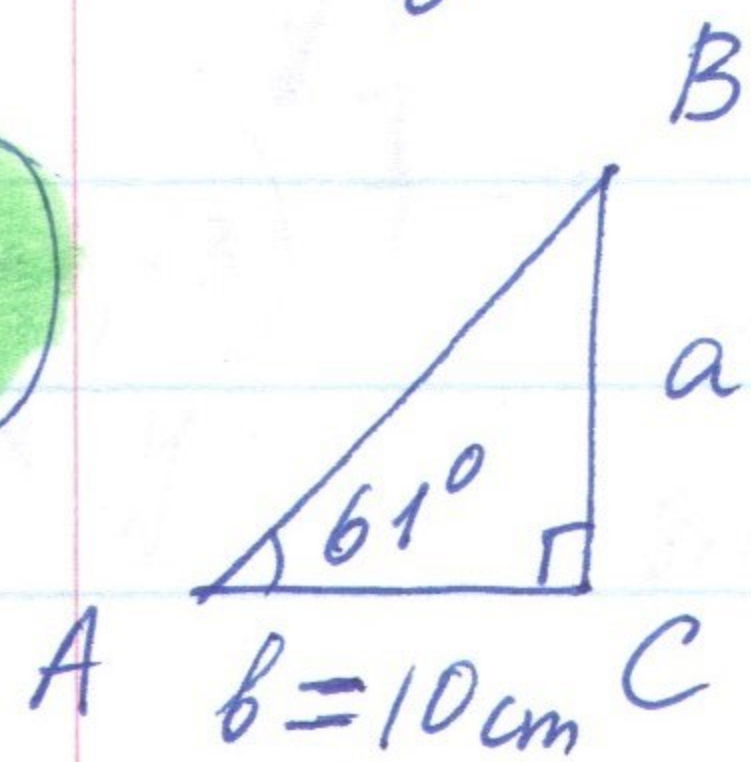 B
a
61°
A
b=10cm
C